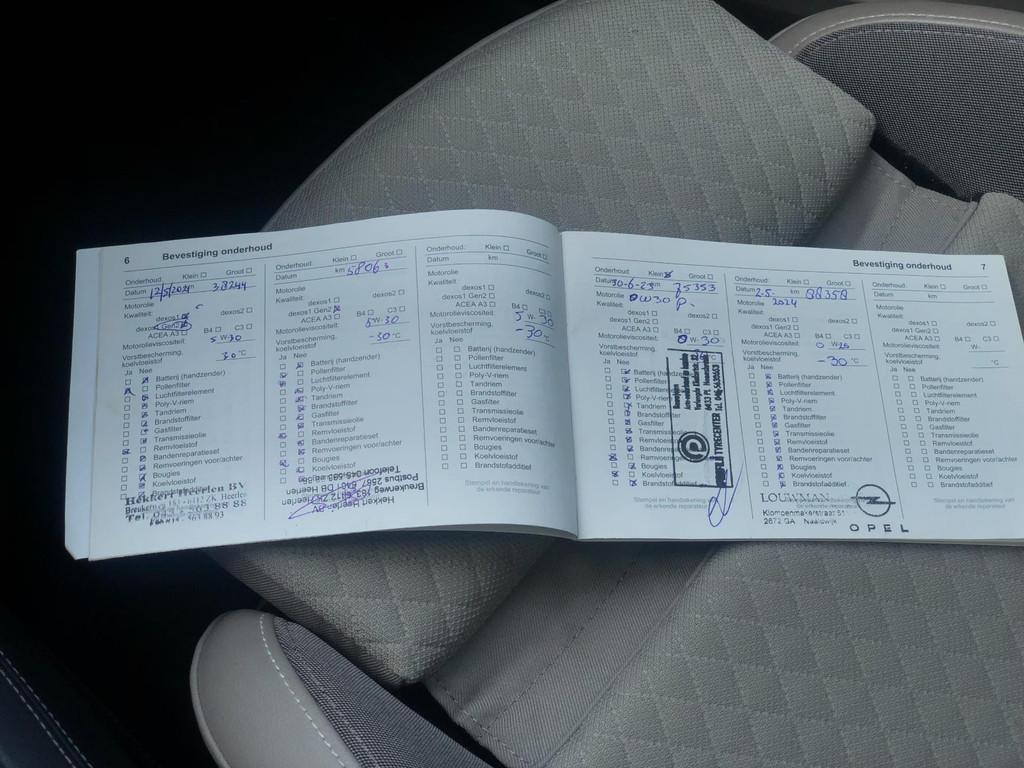 6 Bevestiging onderhoud
Onderhoud: Klein Groot
Datum 12/5/2021 km 38244
Motorolie
Kwaliteit:
dexos1 dexos2
dexos1 Gen2
ACEA A3 B4 C3
Motorolieviscositeit: 5 W-30
Vorstbescherming,
koelvloeistof 30 °C
Ja Nee
Batterij (handzender)
Pollenfilter
Luchtfilterelement
Poly-V-riem
Tandriem
Brandstoffilter
Gasfilter
Transmissieolie
Remvloeistof
Bandenreparatieset
Remvoeringen voor/achter
Bougies
Koelvloeistof
Brandstofadditief
Hekkert Heerlen BV
Onderhoud: Klein Groot
Datum km 58063
Motorolie
Kwaliteit:
dexos1 dexos2
dexos1 Gen2
ACEA A3 B4 C3
Motorolieviscositeit: 5 W-30
Vorstbescherming,
koelvloeistof -30 °C
Ja Nee
Batterij (handzender)
Pollenfilter
Luchtfilterelement
Poly-V-riem
Tandriem
Brandstoffilter
Gasfilter
Transmissieolie
Remvloeistof
Bandenreparatieset
Remvoeringen voor/achter
Bougies
Koelvloeistof
Hekkert Heerlen BV
Onderhoud: Klein Groot
Datum km
Motorolie
Kwaliteit:
dexos1 dexos2
dexos1 Gen2
ACEA A3 B4
Motorolieviscositeit: 5 W-30
Vorstbescherming,
koelvloeistof -30 °C
Ja Nee
Batterij (handzender)
Pollenfilter
Luchtfilterelement
Poly-V-riem
Tandriem
Brandstoffilter
Gasfilter
Transmissieolie
Remvloeistof
Bandenreparatieset
Remvoeringen voor/achter
Bougies
Koelvloeistof
Brandstofadditief
Stempel en handtekening van
de erkende reparateur
Bevestiging onderhoud 7
Onderhoud: Klein Groot
Datum 30-6-23 km 75353
Motorolie 0W30 P.
Kwaliteit:
dexos1 dexos2
dexos1 Gen2
ACEA A3 B4 C3
Motorolieviscositeit: 0 W-30
Vorstbescherming,
koelvloeistof
Ja Nee
Batterij (handzender)
Pollenfilter
Luchtfilterelement
Poly-V-riem
Tandriem
Brandstoffilter
Gasfilter
Transmissieolie
Remvloeistof
Bandenreparatieset
Remvoeringen
Bougies
Koelvloeistof
Brandstofadditief
TYRECENTER
Onderhoud: Klein Groot
Datum 2-5- km 88358
Motorolie 2024
Kwaliteit:
dexos1 dexos2
dexos1 Gen2
ACEA A3 B4 C3
Motorolieviscositeit: 0 W-
Vorstbescherming,
koelvloeistof -30 °C
Ja Nee
Batterij (handzender)
Pollenfilter
Luchtfilterelement
Poly-V-riem
Tandriem
Brandstoffilter
Gasfilter
Transmissieolie
Remvloeistof
Bandenreparatieset
Remvoeringen voor/achter
Bougies
Koelvloeistof
Brandstofadditief
LOUWMAN
Klompenmakerstraat 51
2672 GA Naaldwijk
OPEL
Onderhoud: Klein Groot
Datum km
Motorolie
Kwaliteit:
dexos1 dexos2
dexos1 Gen2
ACEA A3 B4 C3
Motorolieviscositeit: W-
Vorstbescherming,
koelvloeistof °C
Ja Nee
Batterij (handzender)
Pollenfilter
Luchtfilterelement
Poly-V-riem
Tandriem
Brandstoffilter
Gasfilter
Transmissieolie
Remvloeistof
Bandenreparatieset
Remvoeringen voor/achter
Bougies
Koelvloeistof
Brandstofadditief
Stempel en handtekening van
de erkende reparateur